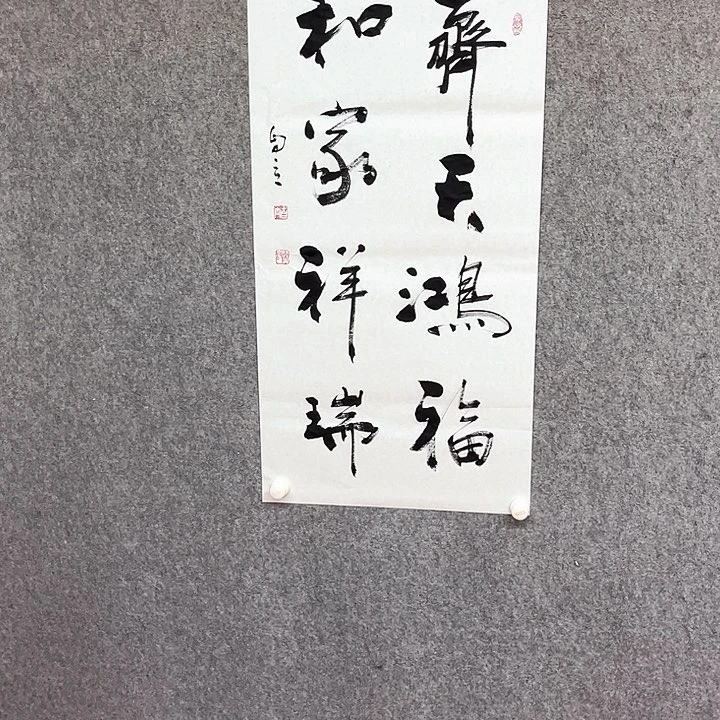 齊天鴻福
和家祥瑞